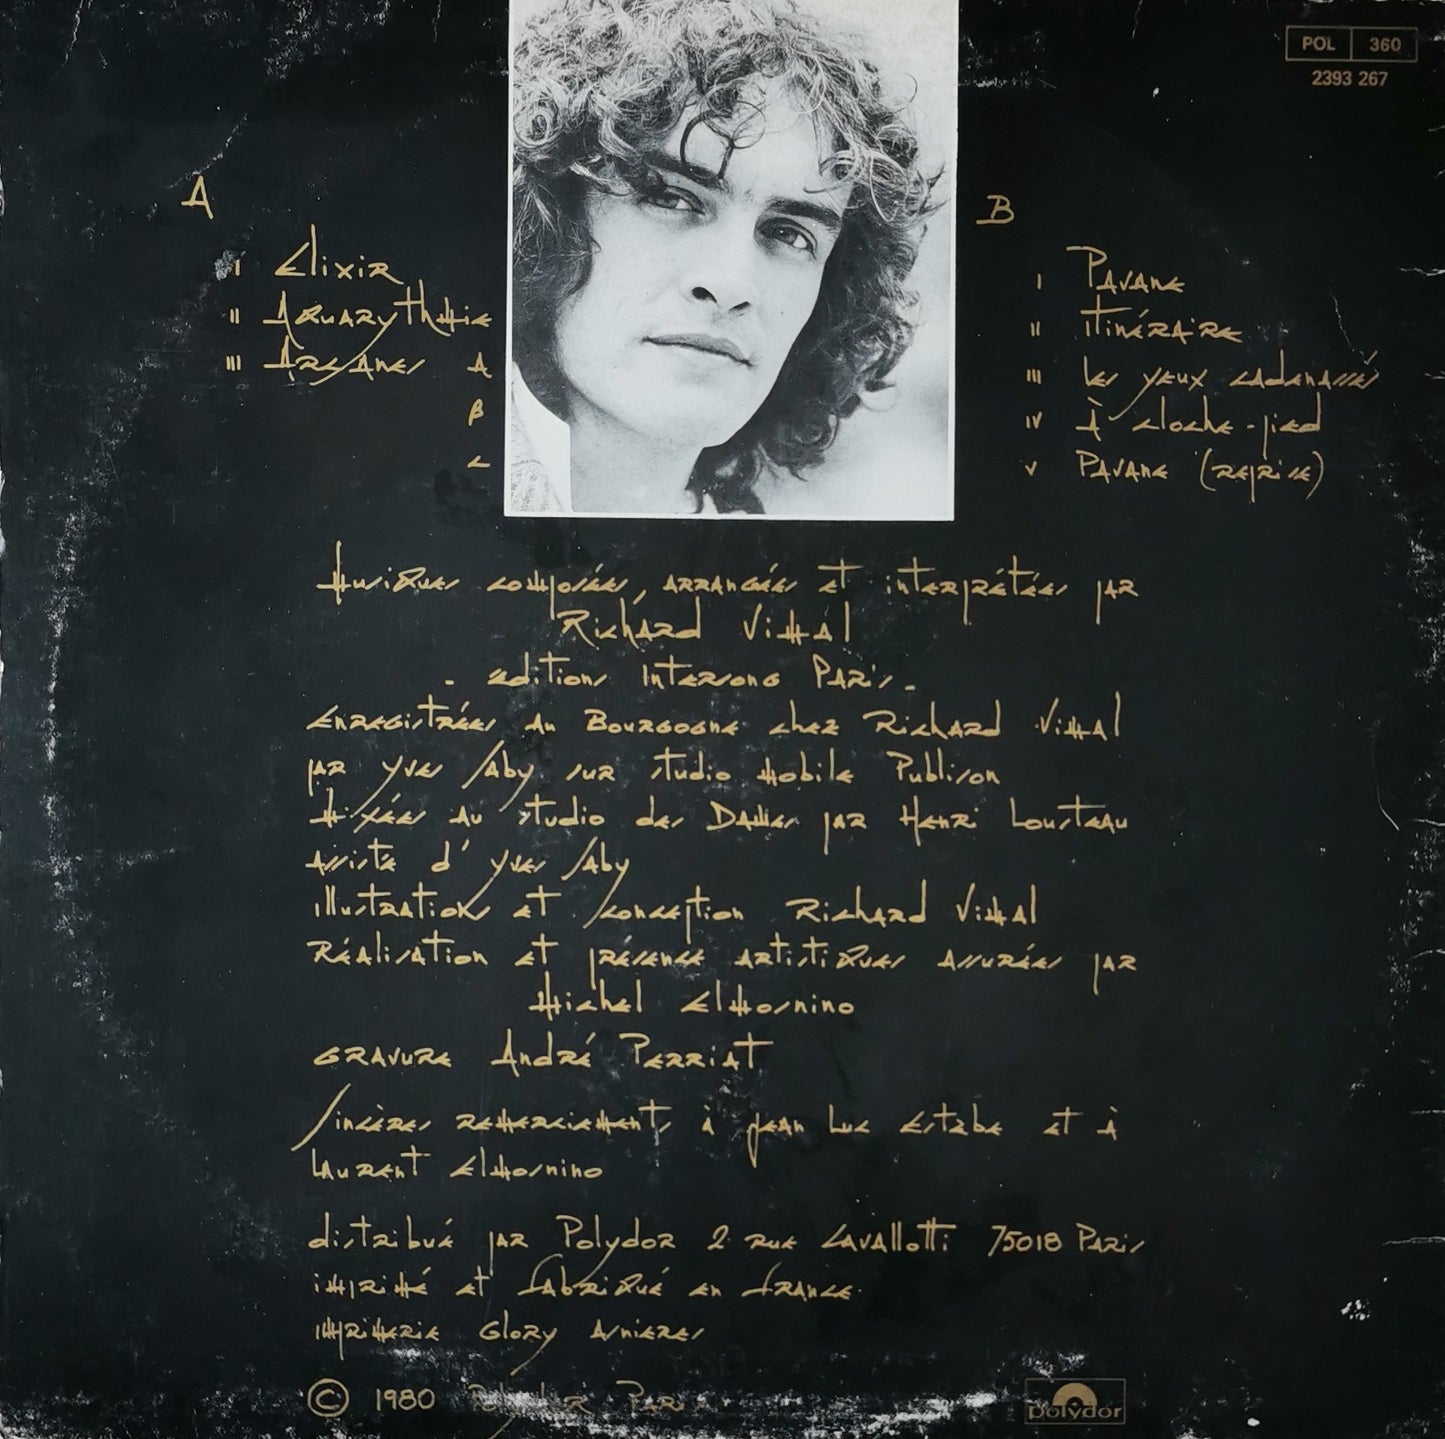 POL 360
2393 267
A
I Elixir
II Aquarythmie
III Arcanes A
B
C
B
I Pavane
II Itinéraire
III Les yeux cadenassés
IV À cloche-pied
V Pavane (reprise)
Musiques composées, arrangées et interprétées par
Richard Vimal
- editions Intersong Paris -
Enregistrées au Bourgogne chez Richard Vimal
par Yves Jaby sur studio mobile Publison
Mixées au studio des Dames par Henri Lousteau
Assisté d'Yves Jaby
illustrations et conception Richard Vimal
Réalisation et présence artistiques assurées par
Michel Elmosnino
Gravure André Perriat
Sincères remerciements à Jean Luc Estèbe et à
Laurent Elmosnino
distribué par Polydor 2 rue Cavallotti 75018 Paris
imprimé et fabriqué en france
imprimerie Glory Asnieres
© 1980 Polydor Paris
polydor